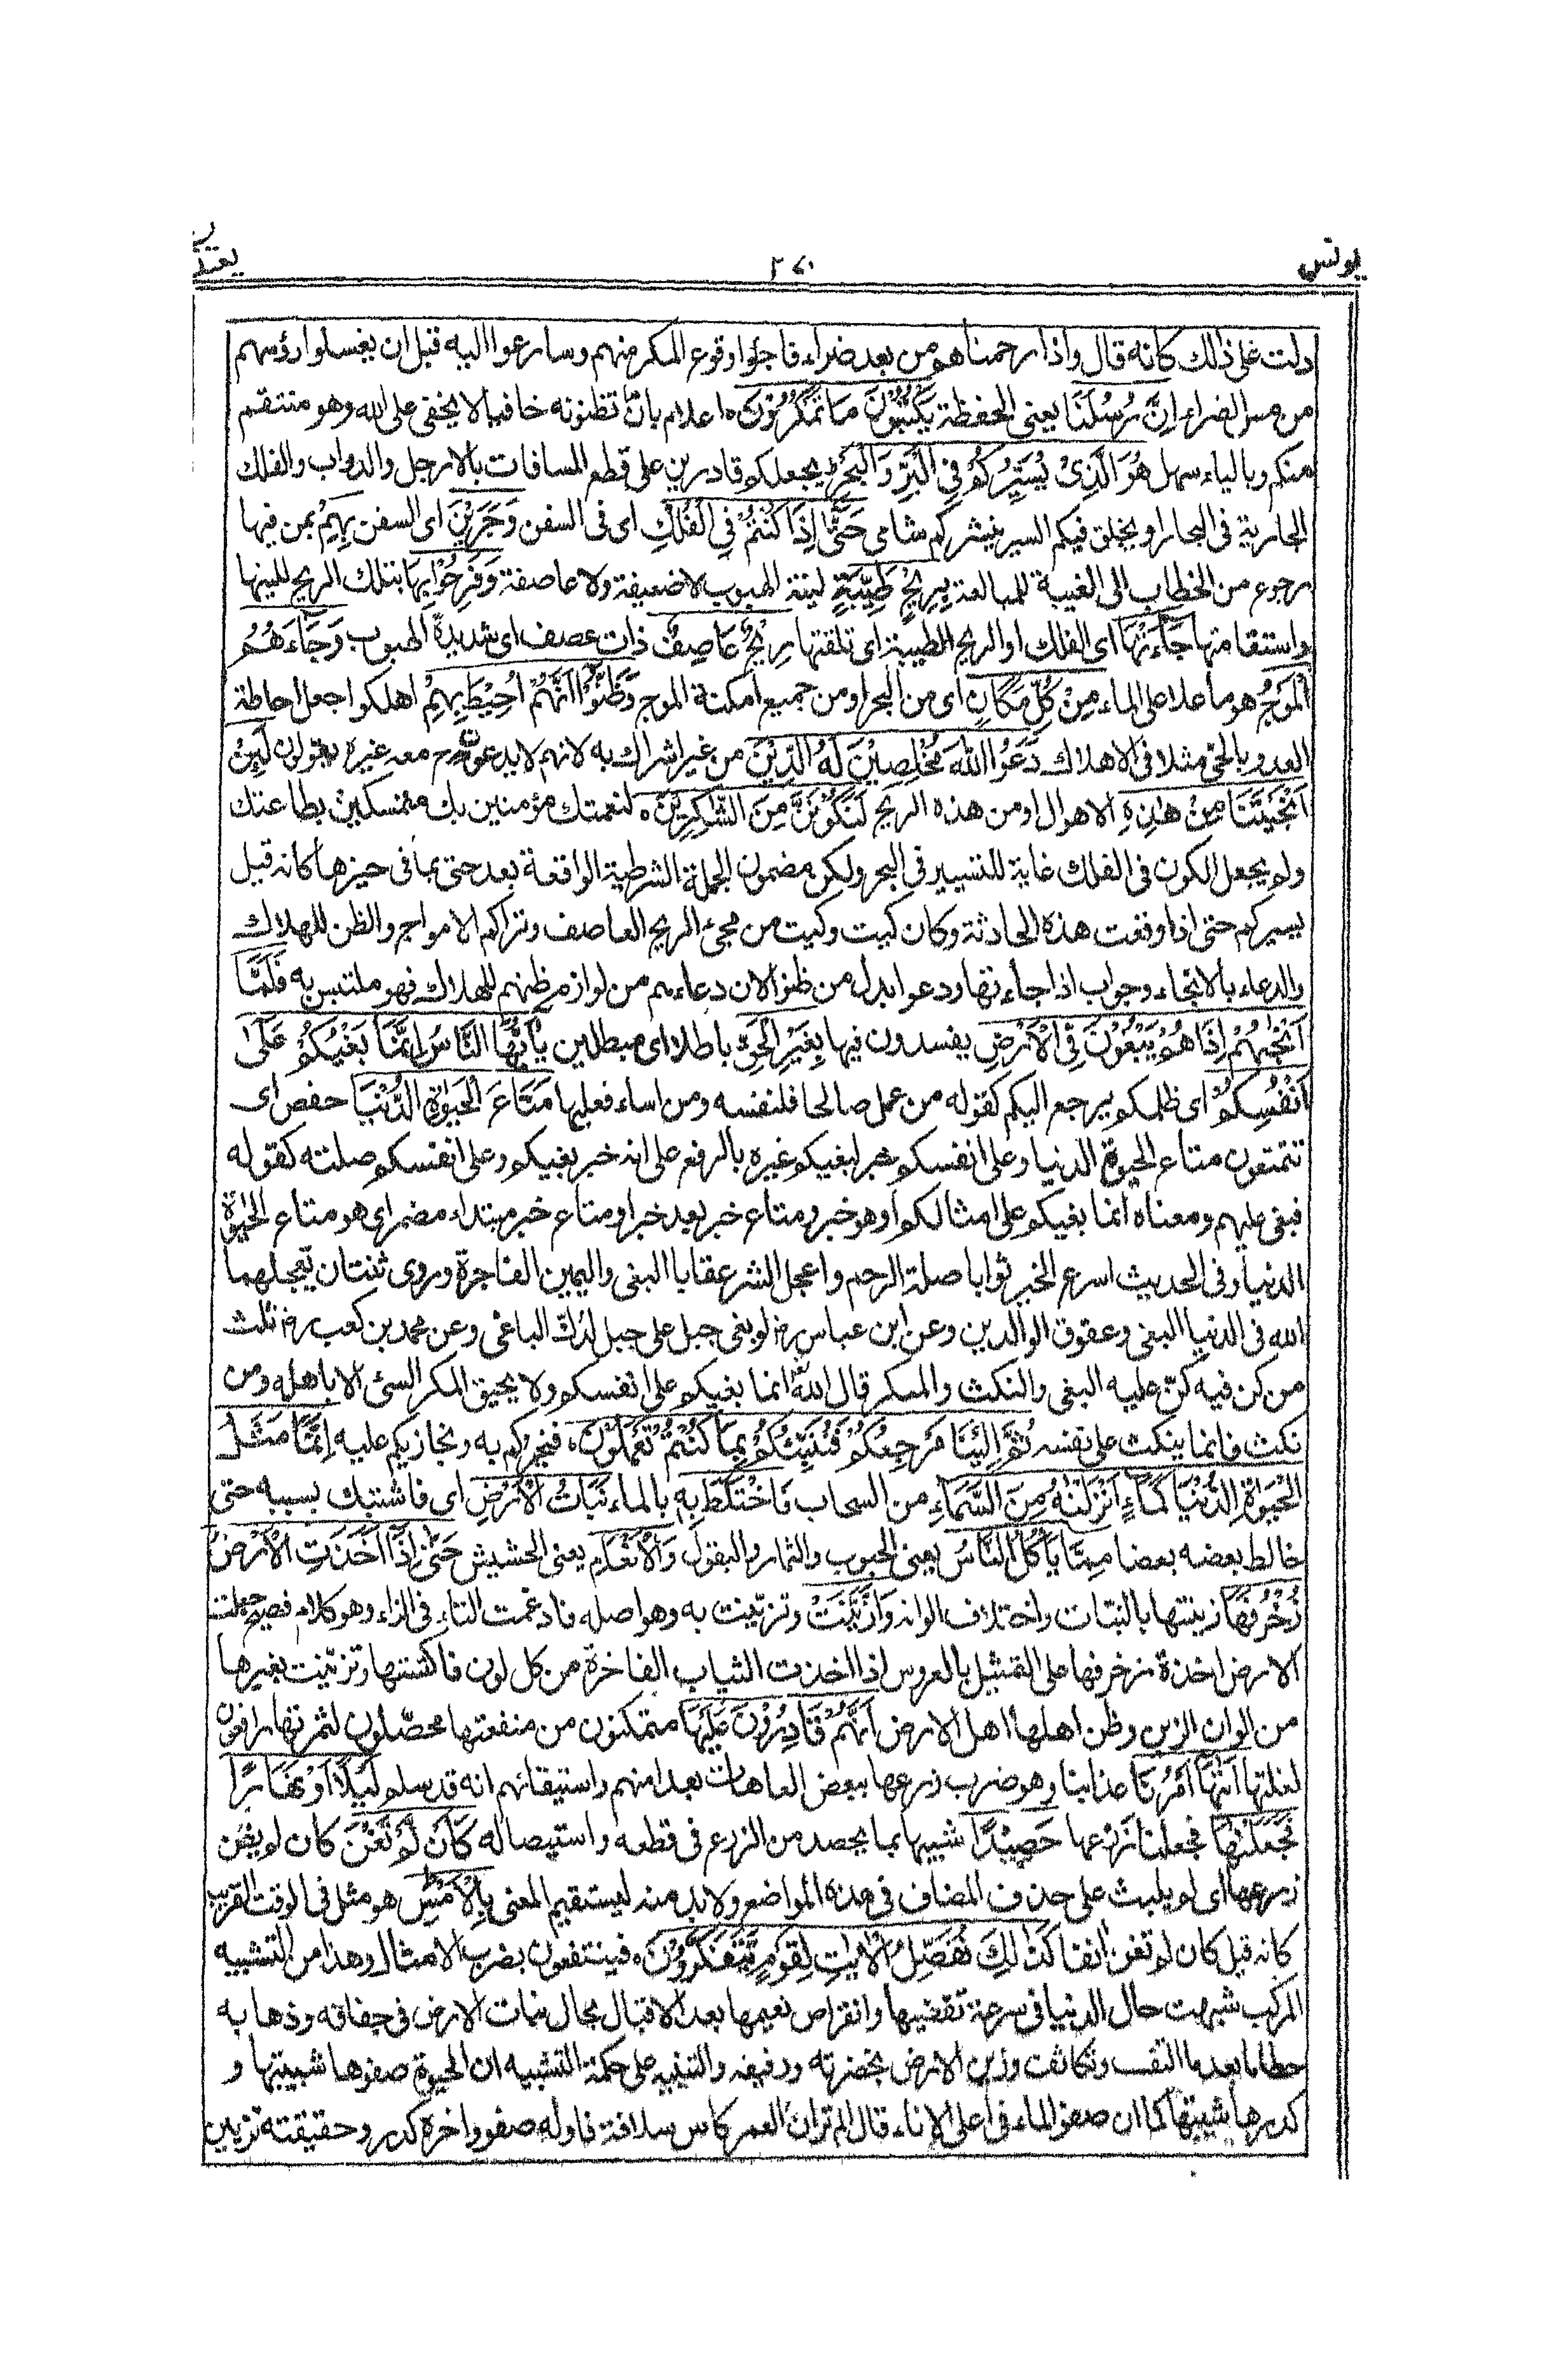 يونس
٢٧٠
يعتذ
دلت على ذلك كانه قال واذا رحمناهم من بعد ضراء فاجؤا وقوع المكر منهم وسارعوا اليه قبل ان يغسلوا رؤسهم
من مس الضراء اِنَّ رُسُلَنَا يعنى الحفظة يَكْتُبُوْنَ مَا تَمْكُرُوْنَ ه اعلام بان ما تظنونه خافيا لا يخفى على الله وهو منتقم
منكم وبالياء سهل هُوَ الَّذِىْ يُسَيِّرُكُمْ فِى الْبَرِّ وَالْبَحْرِ يجعلكم قادرين على قطع المسافات بالارجل والدواب والفلك
الجارية فى البحار او يخلق فيكم السير ينشركم شامى حَتّٰى اِذَا كُنْتُمْ فِى الْفُلْكِ اى فى السفن وَجَرَيْنَ اى السفن بِهِمْ بمن فيها
رجوع من الخطاب الى الغيبة للمبالغة بِرِيْحٍ طَيِّبَةٍ لينة الهبوب لا ضعيفة ولا عاصفة وَفَرِحُوْا بِهَا بتلك الريح للينها
واستقامتها جَآءَتْهَا اى الفلك او الريح الطيبة اى تلقتها رِيْحٌ عَاصِفٌ ذات عصف اى شديدة الهبوب وَجَآءَهُمُ
الْمَوْجُ هو ما علا على الماء مِنْ كُلِّ مَكَانٍ اى من البحر او من جميع امكنة الموج وَظَنُّوْا اَنَّهُمْ اُحِيْطَ بِهِمْ اهلكوا جعل احاطة
العدو بالحى مثلا فى الاهلاك دَعَوُا اللّٰهَ مُخْلِصِيْنَ لَهُ الدِّيْنَ من غير اشراك به لانهم لا يدعون ح معه غيره يقولون لَئِنْ
اَنْجَيْتَنَا مِنْ هٰذِهٖ الاهوال او من هذه الريح لَنَكُوْنَنَّ مِنَ الشّٰكِرِيْنَ ه لنعمتك مؤمنين بك متمسكين بطاعتك
ولم يجعل الكون فى الفلك غاية للتسيير فى البحر ولكن مضمون الجملة الشرطية الواقعة بعد حتى بما فى حيزها كانه قيل
يسيركم حتى اذا وقعت هذه الحادثة وكان كيت وكيت من مجىء الريح العاصف وتراكم الامواج والظن للهلاك
والدعاء بالانجاء وجواب اذا جاءتها ودعوا بدل من ظنوا لان دعاءهم من لوازم ظنهم للهلاك فهو ملتبس به فَلَمَّآ
اَنْجٰهُمْ اِذَا هُمْ يَبْغُوْنَ فِى الْاَرْضِ يفسدون فيها بِغَيْرِ الْحَقِّ باطلا اى مبطلين يٰٓاَيُّهَا النَّاسُ اِنَّمَا بَغْيُكُمْ عَلٰٓى
اَنْفُسِكُمْ اى ظلمكم يرجع اليكم كقوله من عمل صالحا فلنفسه ومن اساء فعليها مَتَاعَ الْحَيٰوةِ الدُّنْيَا حفص اى
تتمتعون متاع الحيوة الدنيا وعلى انفسكم خبر لبغيكم غيره بالرفع على انه خبر بغيكم وعلى انفسكم صلته كقوله
فبغى عليهم ومعناه انما بغيكم على امثالكم او هو خبر ومتاع خبر بعد خبر او متاع خبر مبتداء مضمر اى هو متاع الحيوة
الدنيا وفى الحديث اسرع الخير ثوابا صلة الرحم واعجل الشر عقابا البغى واليمين الفاجرة وروى ثنتان يعجلهما
الله فى الدنيا البغى وعقوق الوالدين وعن ابن عباس رض لو بغى جبل على جبل لدك الباغى وعن محمد بن كعب رض ثلث
من كن فيه كن عليه البغى والنكث والمكر قال الله انما بغيكم على انفسكم ولا يحيق المكر السئ الا باهله ومن
نكث فانما ينكث على نفسه ثُمَّ اِلَيْنَا مَرْجِعُكُمْ فَنُنَبِّئُكُمْ بِمَا كُنْتُمْ تَعْمَلُوْنَ ه فنخبركم به ونجازيكم عليه اِنَّمَا مَثَلُ
الْحَيٰوةِ الدُّنْيَا كَمَآءٍ اَنْزَلْنٰهُ مِنَ السَّمَآءِ من السحاب فَاخْتَلَطَ بِهٖ بالماء نَبَاتُ الْاَرْضِ اى فاشتبك بسببه حتى
خالط بعضه بعضا مِمَّا يَاْكُلُ النَّاسُ يعنى الحبوب والثمار والبقول وَالْاَنْعَامُ يعنى الحشيش حَتّٰٓى اِذَآ اَخَذَتِ الْاَرْضُ
زُخْرُفَهَا زينتها بالنبات واختلاف الوانه وَازَّيَّنَتْ وتزينت به وهو اصله فادغمت التاء فى الزاء وهو كلام فصيح جعلت
الارض اخذة زخرفها على التمثيل بالعروس اذا اخذت الثياب الفاخرة من كل لون فاكتستها وتزينت بغيرها
من الوان الزين وظن اهلها اهل الارض اَنَّهُمْ قَادِرُوْنَ عَلَيْهَا متمكنون من منفعتها محصلون لثمرتها رافعون
لغلتها اَتٰهَآ اَمْرُنَا عذابنا وهو ضرب زرعها ببعض العاهات بعد امنهم واستيقانهم انه قد سلم لَيْلًا اَوْ نَهَارًا
فَجَعَلْنٰهَا فجعلنا زرعها حَصِيْدًا شبيها بما يحصد من الزرع فى قطعه واستيصاله كَاَنْ لَّمْ تَغْنَ كان لم يغن
زرعها اى لم يلبث على حذف المضاف فى هذه المواضع ولا بد منه ليستقيم المعنى بِالْاَمْسِ هو مثل فى الوقت القريب
كانه قيل كان لم تغن انفا كَذٰلِكَ نُفَصِّلُ الْاٰيٰتِ لِقَوْمٍ يَّتَفَكَّرُوْنَ ه فينتفعون بضرب الامثال وهذا من التشبيه
المركب شبهت حال الدنيا فى سرعة تقضيها وانقراض نعيمها بعد الاقبال بحال نبات الارض فى جفافه وذهابه
حطاما بعد ما التف وتكاثف وزين الارض بخضرته ورفيفه والتنبيه على حكمة التشبيه ان الحيوة صفوها شبيبتها و
كدرها شيبتها كما ان صفو الماء فى اعلى الاناء قال الم تر ان العمر كاس سلافة فاوله صفو واخره كدر وحقيقته تزيين